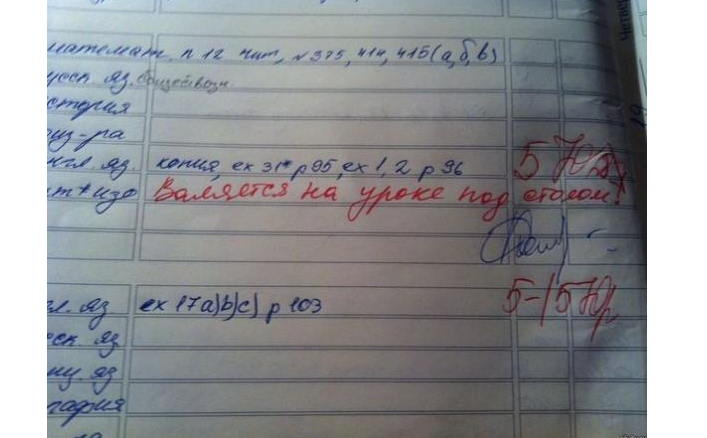 математ. п 12 чит, №375, 414, 415(а,б,в)
усск. яз. обществозн.
стория
из-ра
нгл. яз. копия, ex 31* p 95, ex 1, 2 p 96 5
т+изо Валяется на уроке под столом!
гл. яз ex 17a)b)c) p 103 5-/5
сск. яз
яз
графия